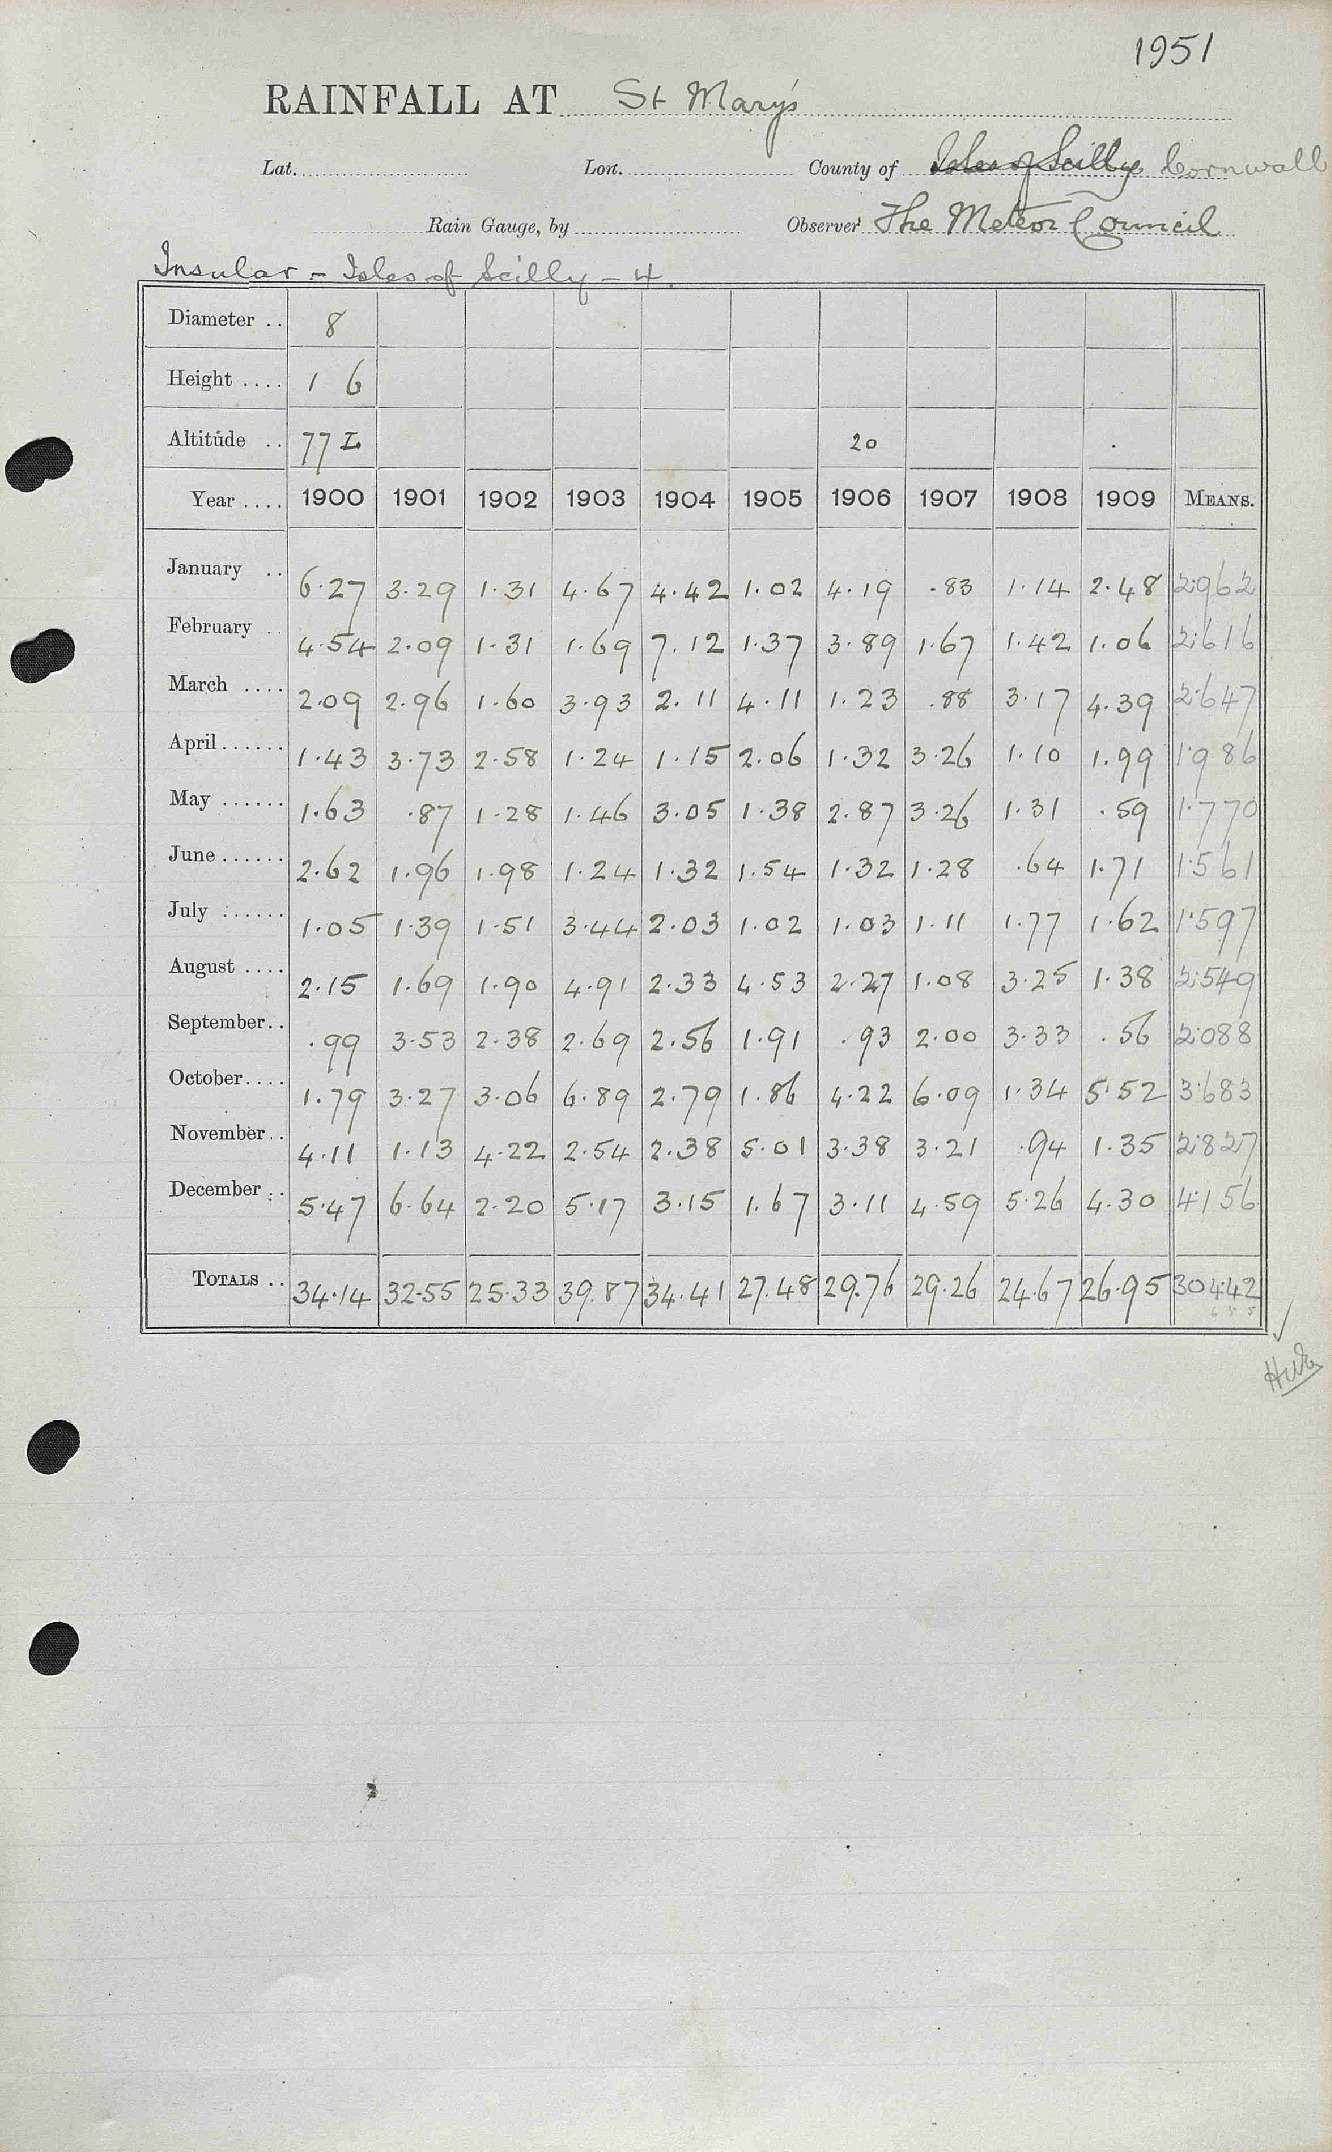 1951
RAINFALL AT St Mary's
Lat. Lon. County of Isles of Scilly Cornwall
Rain Gauge, by Observer The Meteor Council
Insular - Isles of Scilly - 4.
Diameter .. 8
Height .... 1 6
Altitude .. 77 I 20
Year .... 1900 1901 1902 1903 1904 1905 1906 1907 1908 1909 MEANS.
January .. 6.27 3.29 1.31 4.67 4.42 1.02 4.19 .83 1.14 2.48 2.962
February .. 4.54 2.09 1.31 1.69 7.12 1.37 3.89 1.67 1.42 1.06 2.616
March .... 2.09 2.96 1.60 3.93 2.11 4.11 1.23 .88 3.17 4.39 2.647
April ...... 1.43 3.73 2.58 1.24 1.15 2.06 1.32 3.26 1.10 1.99 1.986
May ...... 1.63 .87 1.28 1.46 3.05 1.38 2.87 3.26 1.31 .59 1.770
June ...... 2.62 1.96 1.98 1.24 1.32 1.54 1.32 1.28 .64 1.71 1.561
July ...... 1.05 1.39 1.51 3.44 2.03 1.02 1.03 1.11 1.77 1.62 1.597
August .... 2.15 1.69 1.90 4.91 2.33 4.53 2.27 1.08 3.25 1.38 2.549
September .. .99 3.53 2.38 2.69 2.56 1.91 .93 2.00 3.33 .56 2.088
October .... 1.79 3.27 3.06 6.89 2.79 1.86 4.22 6.09 1.34 5.52 3.683
November .. 4.11 1.13 4.22 2.54 2.38 5.01 3.38 3.21 .94 1.35 2.827
December .. 5.47 6.64 2.20 5.17 3.15 1.67 3.11 4.59 5.26 4.30 4.156
TOTALS .. 34.14 32.55 25.33 39.87 34.41 27.48 29.76 29.26 24.67 26.95 30.442